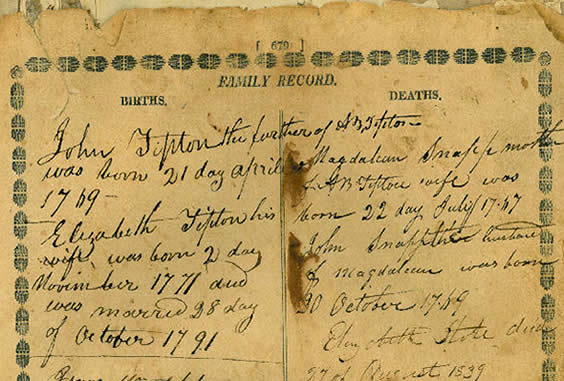 [ 679 ]
FAMILY RECORD.
BIRTHS.
John Tipton the further of A B Tipton
was born 21 day april
1769
Elizabeth Tipton his
wife was born 2 day
November 1771 and
was married 28 day
of October 1791
DEATHS.
Magdalean Snapp mother
of A B Tipton wife was
born 22 day July 1747
John Snapp ther
of magdalean was born
20 October 1749
Elizabeth
27 of August 1839